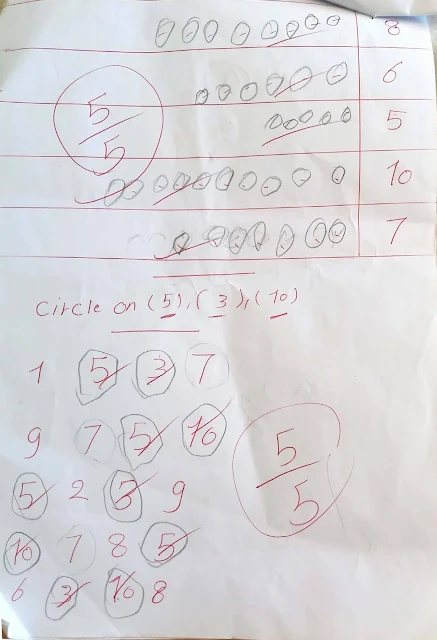 8
6
5
5/5
10
7
Circle on (5), (3), (10)
1 5 3 7
9 7 5 10
5/5
5 2 3 9
10 7 8 5
6 3 10 8